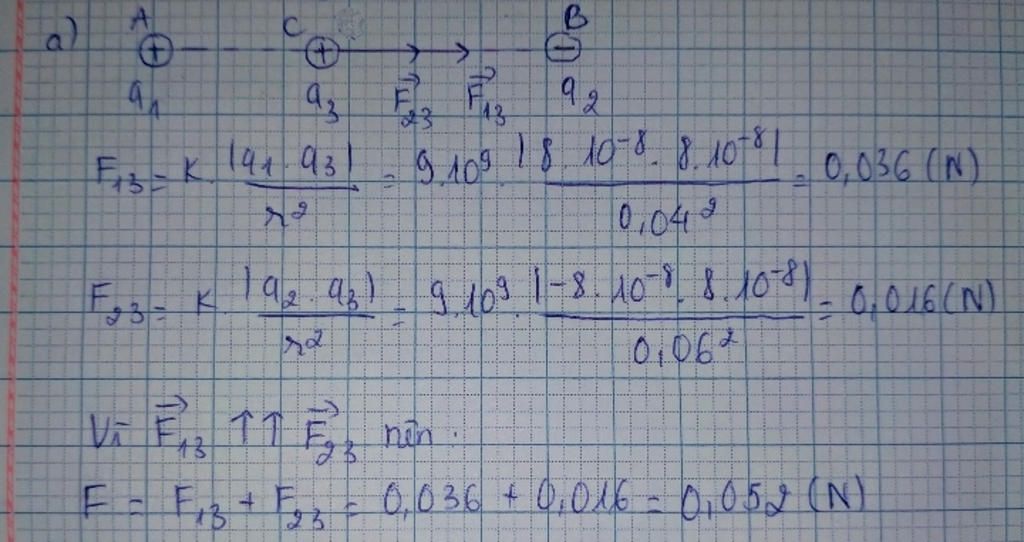 a) A C B
⊕ ⊕ ⊖
q₁ q₃ F⃗₂₃ F⃗₁₃ q₂
F₁₃ = k. |q₁ . q₃| / r² = 9.10⁹ . |8 . 10⁻⁸ . 8.10⁻⁸| / 0,04² = 0,036 (N)
F₂₃ = k |q₂ . q₃| / r² = 9.10⁹ . |-8 . 10⁻⁸ . 8.10⁻⁸| / 0,06² = 0,016 (N)
Vì F⃗₁₃ ↑↑ F⃗₂₃ nên .
F = F₁₃ + F₂₃ = 0,036 + 0,016 = 0,052 (N)